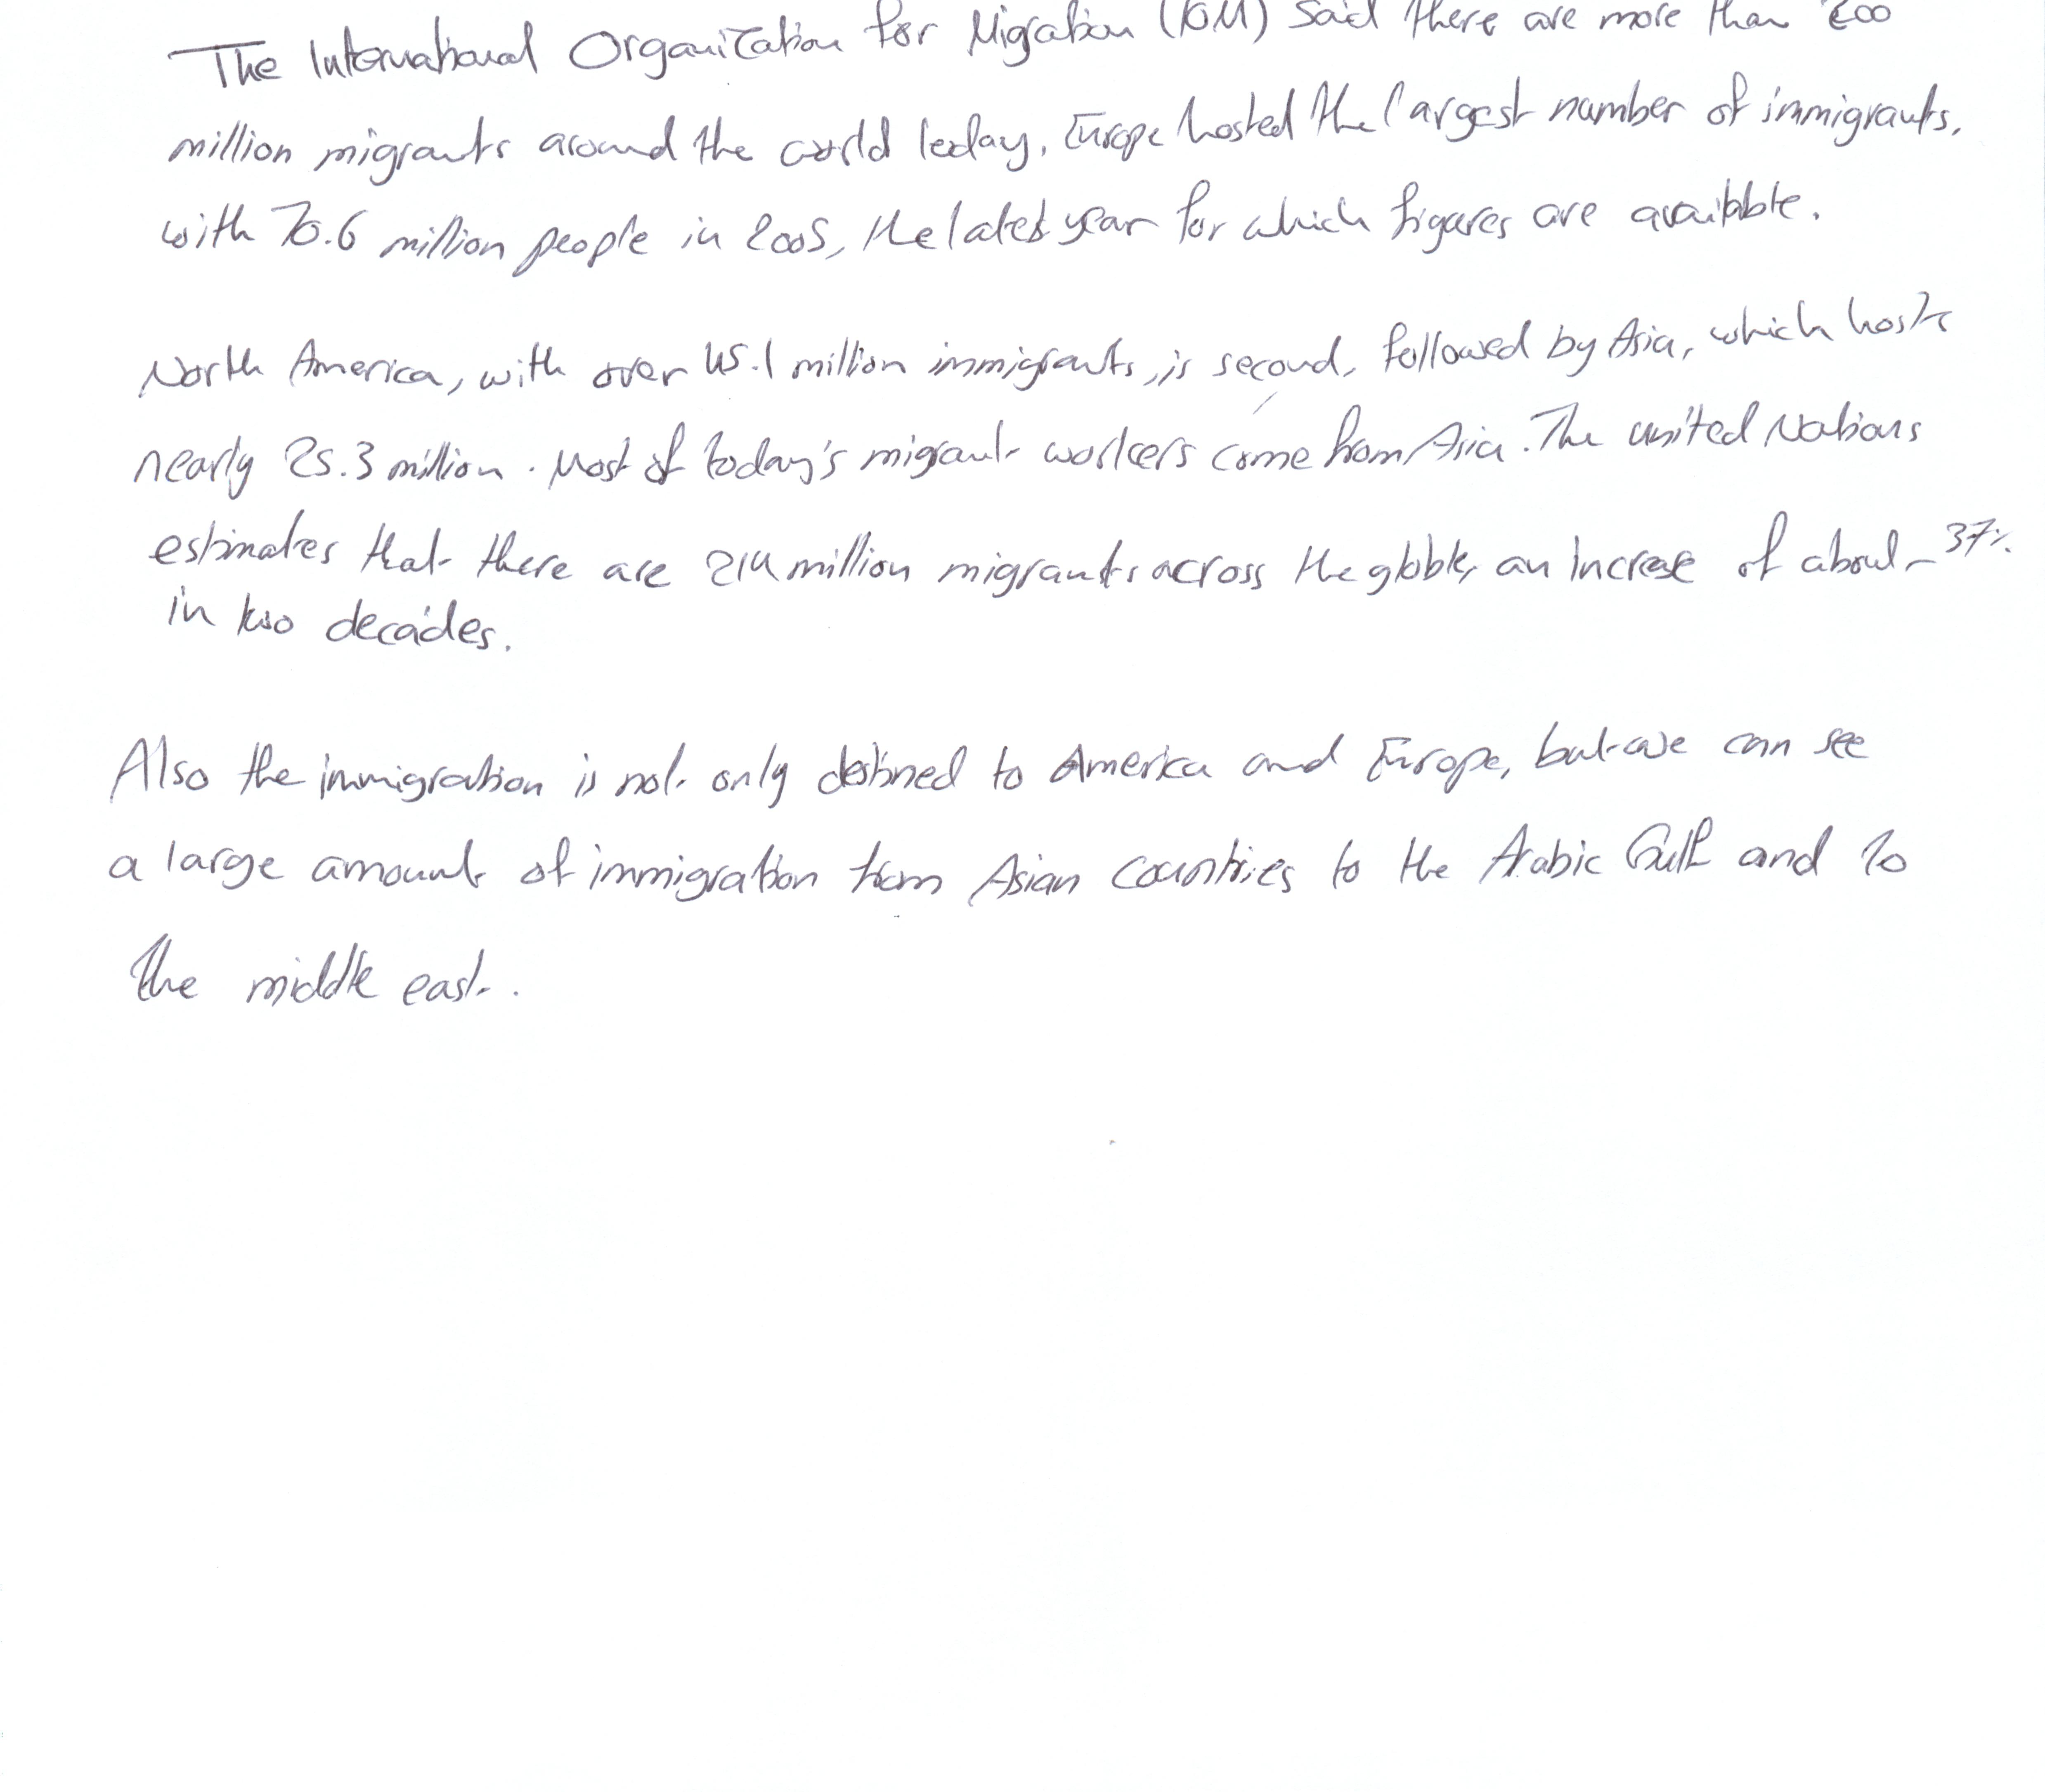 The International Organization for Migration (IOM) said there are more than 200
million migrants around the world today. Europe hosted the largest number of immigrants,
with 70.6 million people in 2005, the latest year for which figures are available.
North America, with over 45.1 million immigrants, is second, followed by Asia, which hosts
nearly 25.3 million. Most of today's migrant workers come from Asia. The united Nations
estimates that there are 214 million migrants across the globle, an increase of about 37%
in two decades.
Also the immigration is not only destined to America and Europe, but we can see
a large amount of immigration from Asian countries to the Arabic Gulf and to
the middle east.